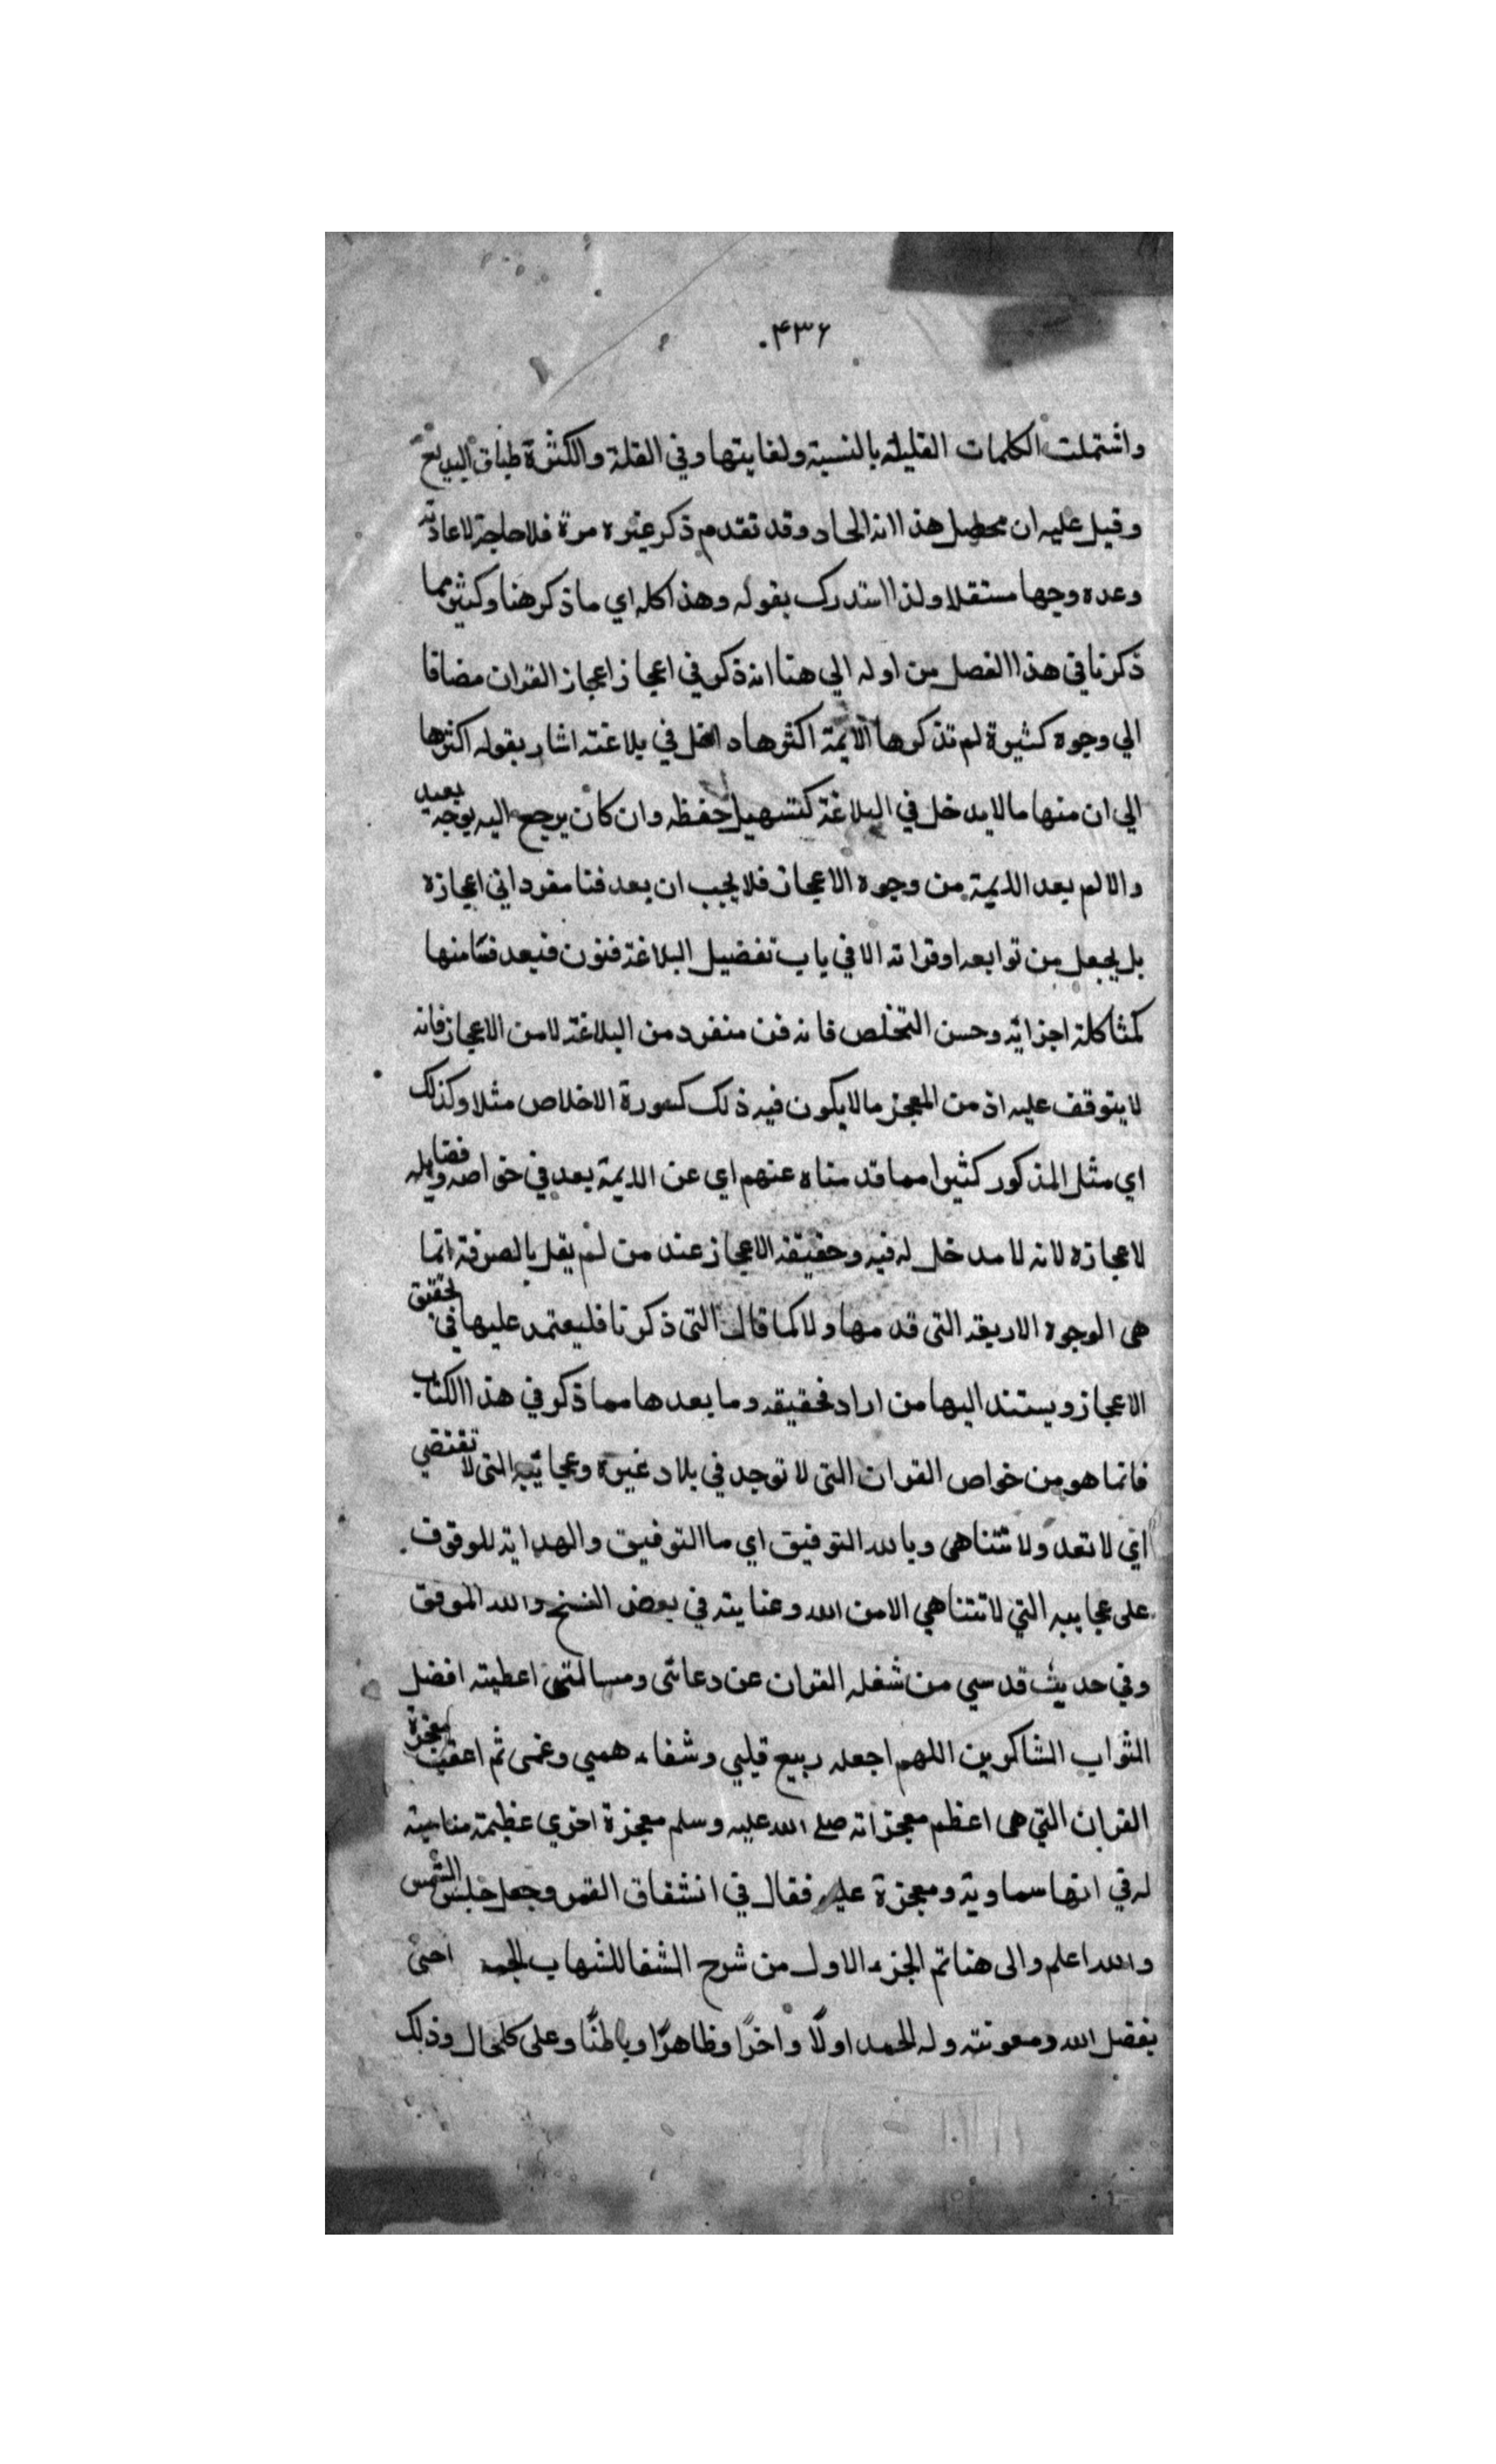 ۴۳۶.
واشتملت الكلمات القليلة بالنسبة ولغايتها وفي القلة والكثرة طباق البديع
وقيل عليه ان محصل هذا انه الحاد وقد تقدم ذكر غيره مرة فلا حاجة لاعادته
وعده وجها مستقلا ولذا استدرك بقوله وهذا كله اي ما ذكر هنا وكثير مما
ذكرنا في هذا الفصل من اوله الي هنا انه ذكر في اعجاز اعجاز القران مضافا
الي وجوه كثيرة لم تذكرها الايمة اكثرها داخل في بلاغته اشار بقوله اكثرها
الي ان منها ما لا يدخل في البلاغة كتسهيل حفظه وان كان يرجع اليه بوجه بعيد
والا لم يعد الايمة من وجوه الاعجاز فلا يجب ان يعد فنا مفردا في اعجازه
بل يجعل من توابعه او قراته الا في باب تفضيل البلاغة فنون فنيعد فنا منها
كمشاكلة اجزائه وحسن التخلص فانه فن منفرد من البلاغة لا من الاعجاز فانه
لا يتوقف عليه اذ من المعجز ما لا يكون فيه ذلك كسورة الاخلاص مثلا وكذلك
اي مثل المذكور كثيرا مما قدمناه عنهم اي عن الايمة يعد في خواصه وفضايله
لاعجازه لانه لا مدخل له فيه وحقيقة الاعجاز عند من لم يقل بالصرفة انما
هي الوجوه الاربعة التي قدمها ولا كما قال التي ذكرنا فليعتمد عليها في تحقيق
الاعجاز ويستند اليها من اراد تحقيقه وما بعدها مما ذكر في هذا الكتاب
فانما هو من خواص القران التي لا توجد في بلاد غيره وعجائبه التي لا تقتضي
اي لا تعد ولا تتناهى وبالله التوفيق اي ما التوفيق والهداية للوقوف
على عجايبه التي لا تتناهي الا من الله وعنايته في بعض النسخ والله الموفق
وفي حديث قدسي من شغله القران عن دعائى ومسالتي اعطيته افضل
الثواب الشاكرين اللهم اجعله ربيع قلبي وشفاء همي وغمى ثم اعقبت معجزة
القران التي هي اعظم معجزاته صلى الله عليه وسلم معجزة اخري عظيمة مناسبة
له في انها سماوية ومعجزة عليه فقال في انشقاق القمر وجعل حبس الشمس
والله اعلم والى هنا تم الجزء الاول من شرح الشفا للشهاب
بفضل الله ومعونته وله الحمد اولًا واخرًا وظاهرًا وباطنًا وعلى كل حال وذلك